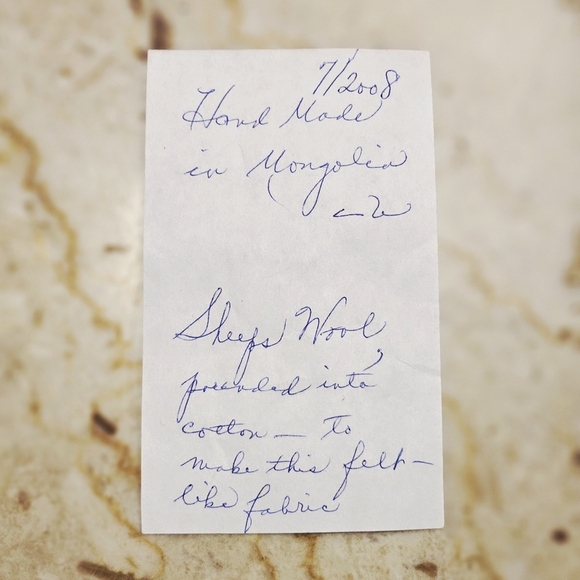 7/2008
Hand Made
in Mongolia
Sheeps Wool,
pounded into
cotton — to
make this felt-
like fabric